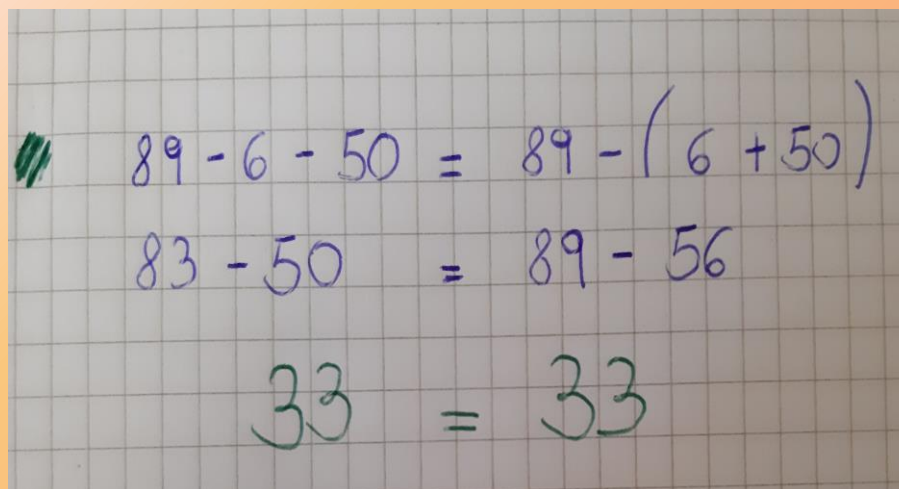 89 - 6 - 50 = 89 - ( 6 + 50 )
83 - 50 = 89 - 56
33 = 33